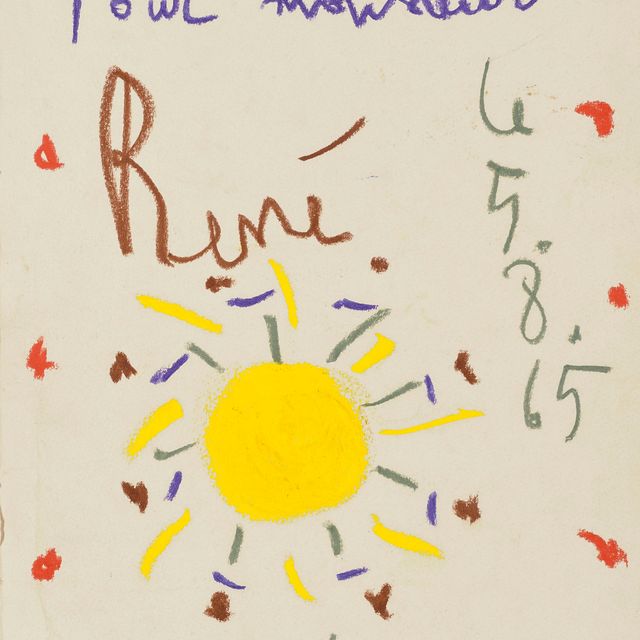 Pour Monsieur
René
Le
5.
8.
65